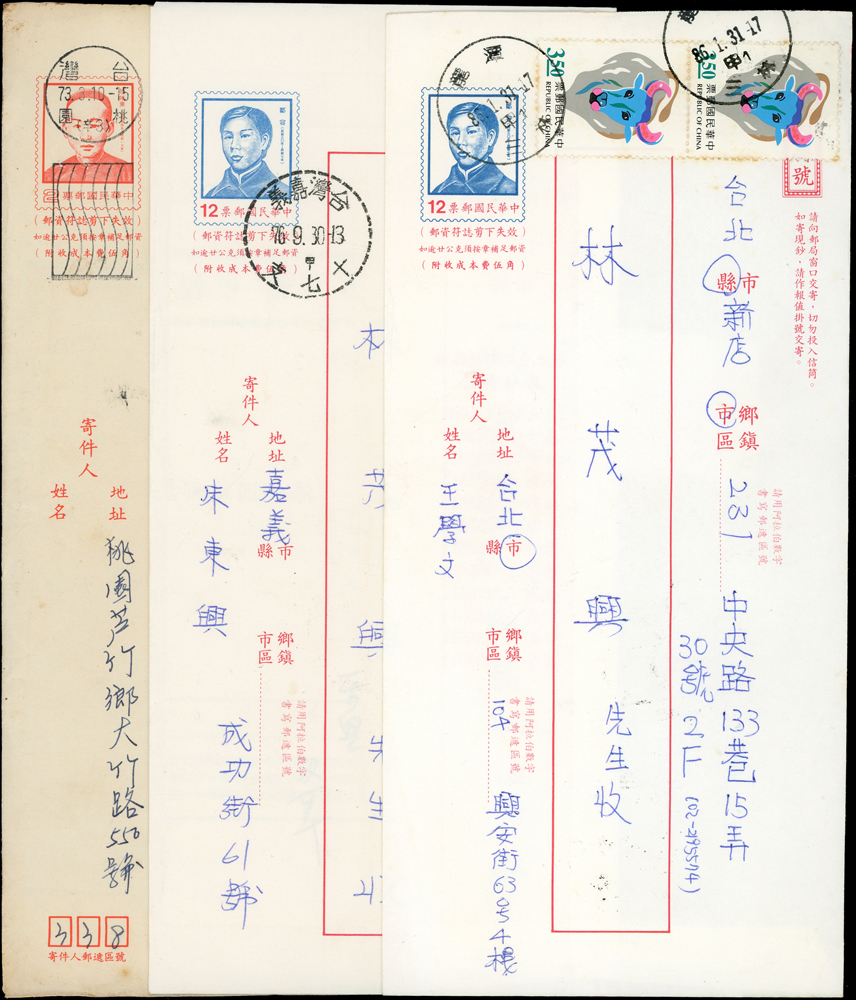 台
灣
73.3.10-15
桃
園
中華民國郵票
(郵資符誌剪下失效)
如逾廿公克須按章補足郵資
(附收成本費伍角)
寄件人
地址
姓名
桃園芦竹鄉大竹路550號
338
寄件人郵遞區號
12
中華民國郵票
(郵資符誌剪下失效)
如逾廿公克須按章補足郵資
(附收成本費伍角)
台灣嘉義
76.9.30-13
甲
七
林
茂
興
先
生
寄件人
地址
嘉義
市
縣
鄉鎮
市區
請用阿拉伯數字
書寫郵遞區號
成功街61號
姓名
朱東興
中華民國郵票
REPUBLIC OF CHINA
350
中華民國郵票
REPUBLIC OF CHINA
350
86.1.31-17
甲1
三
86.1.31-17
甲1
三
12
中華民國郵票
(郵資符誌剪下失效)
如逾廿公克須按章補足郵資
(附收成本費伍角)
號
請向郵局窗口交寄,切勿投入信筒。
如寄現鈔,請作報值掛號交寄。
台北
市
縣
新店
鄉鎮
市區
請用阿拉伯數字
書寫郵遞區號
231
中央路133巷15弄
30號2F
林茂興先生收
寄件人
地址
台北
市
縣
鄉鎮
市區
請用阿拉伯數字
書寫郵遞區號
104
興安街63号4樓
姓名
王學文